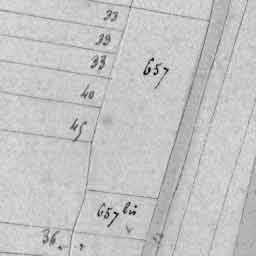 33
39
33
657
40
45
657 bis
36